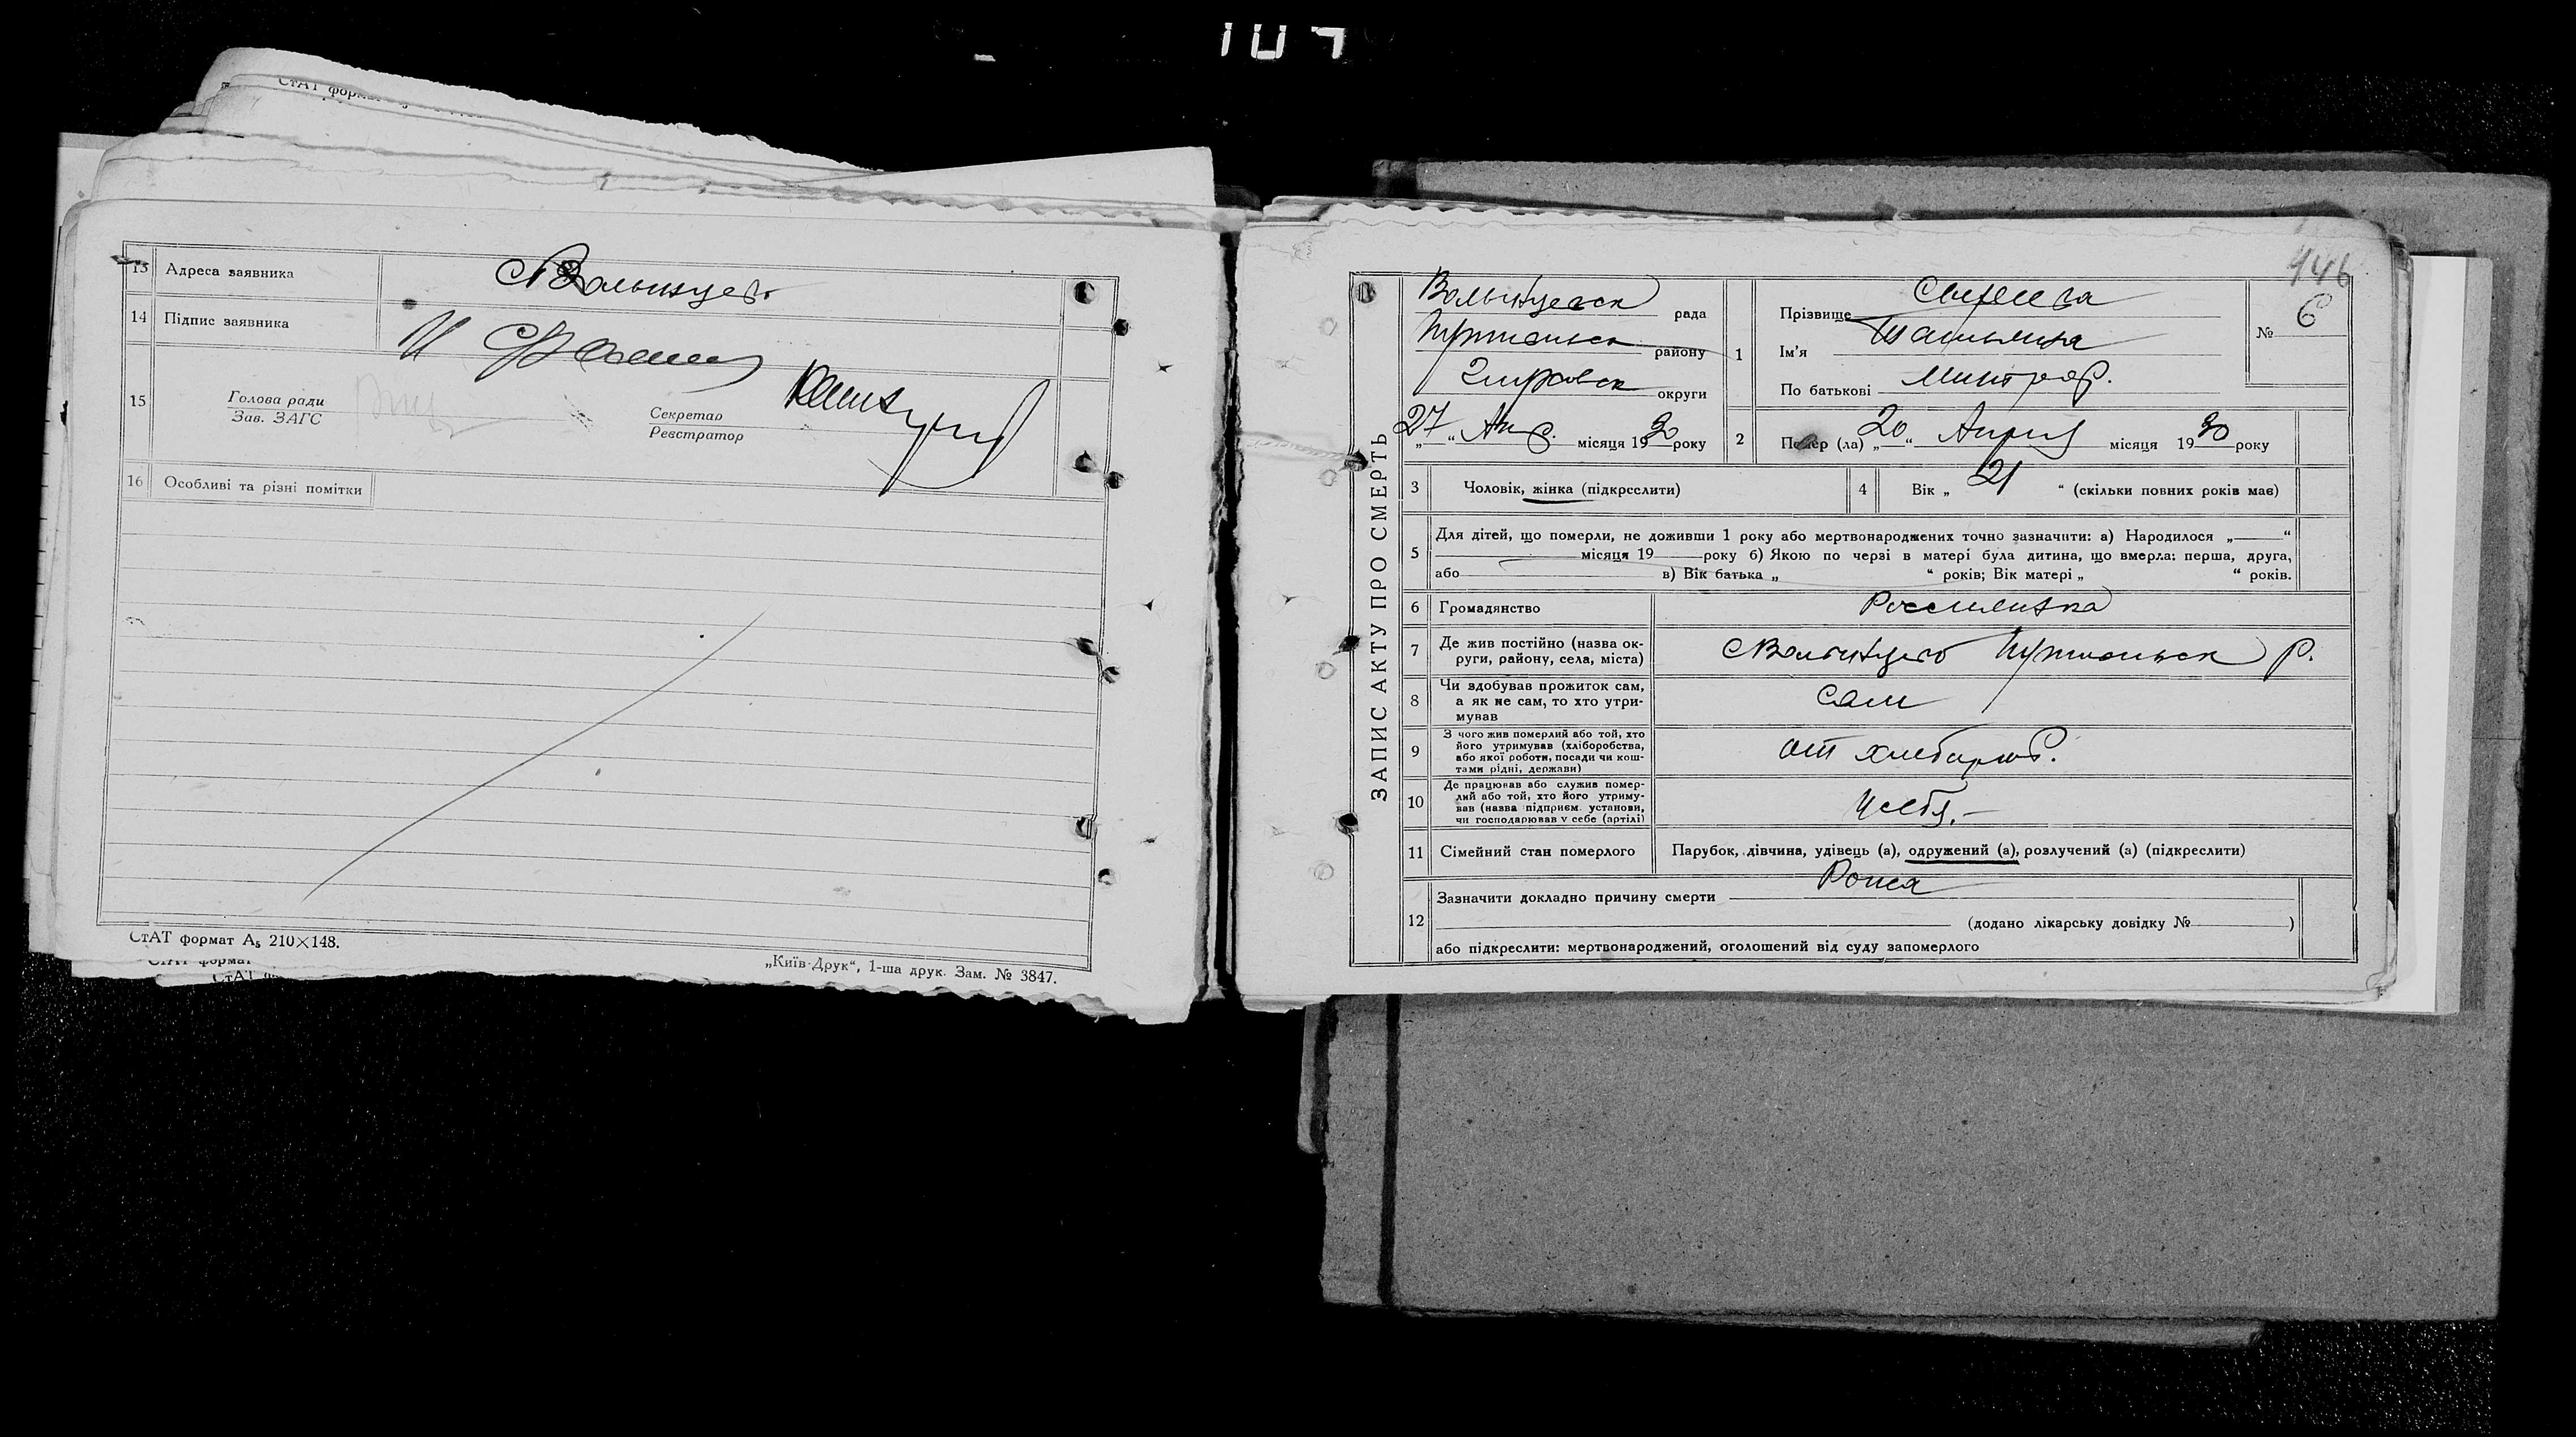 СтАТ
13 Адреса заявника С Волынцево
14 Підпис заявника
15 Голова ради
Зав. ЗАГС
Секретар
Реєстратор
16 Особливі та різні помітки
СтАТ формат А₅ 210×148.
„Київ-Друк“, 1-ша друк. Зам. № 3847.
446
ЗАПИС АКТУ ПРО СМЕРТЬ
Волынцевск рада
Путивльск району
округи
„27“ Апр. місяця 1930 року
1 Прізвище
Ім'я Татьяна
По батькові Митроф.
№ 6
2 Помер (ла) „20“ Апреля місяця 1930 року
3 Чоловік, жінка (підкреслити)
4 Вік „21“ (скільки повних років має)
5 Для дітей, що померли, не доживши 1 року або мертвонароджених точно зазначити: а) Народилося „ “
місяця 19 року б) Якою по черзі в матері була дитина, що вмерла: перша, друга,
або в) Вік батька „ “ років; Вік матері „ “ років.
6 Громадянство
7 Де жив постійно (назва ок-
руги, району, села, міста) С Волынцево Путивльск р.
8 Чи здобував прожиток сам,
а як не сам, то хто утри-
мував сам
9 З чого жив померлий або той, хто
його утримував (хліборобства,
або якої роботи, посади чи кош-
тами рідні, держави) от хлебороб.
10 Де працював або служив помер-
лий або той, хто його утриму-
вав (назва підприєм. установи,
чи господарював у себе (артілі) у себя.
11 Сімейний стан померлого Парубок, дівчина, удівець (а), одружений (а), розлучений (а) (підкреслити)
12 Зазначити докладно причину смерти
(додано лікарську довідку № )
або підкреслити: мертвонароджений, оголошений від суду запомерлого